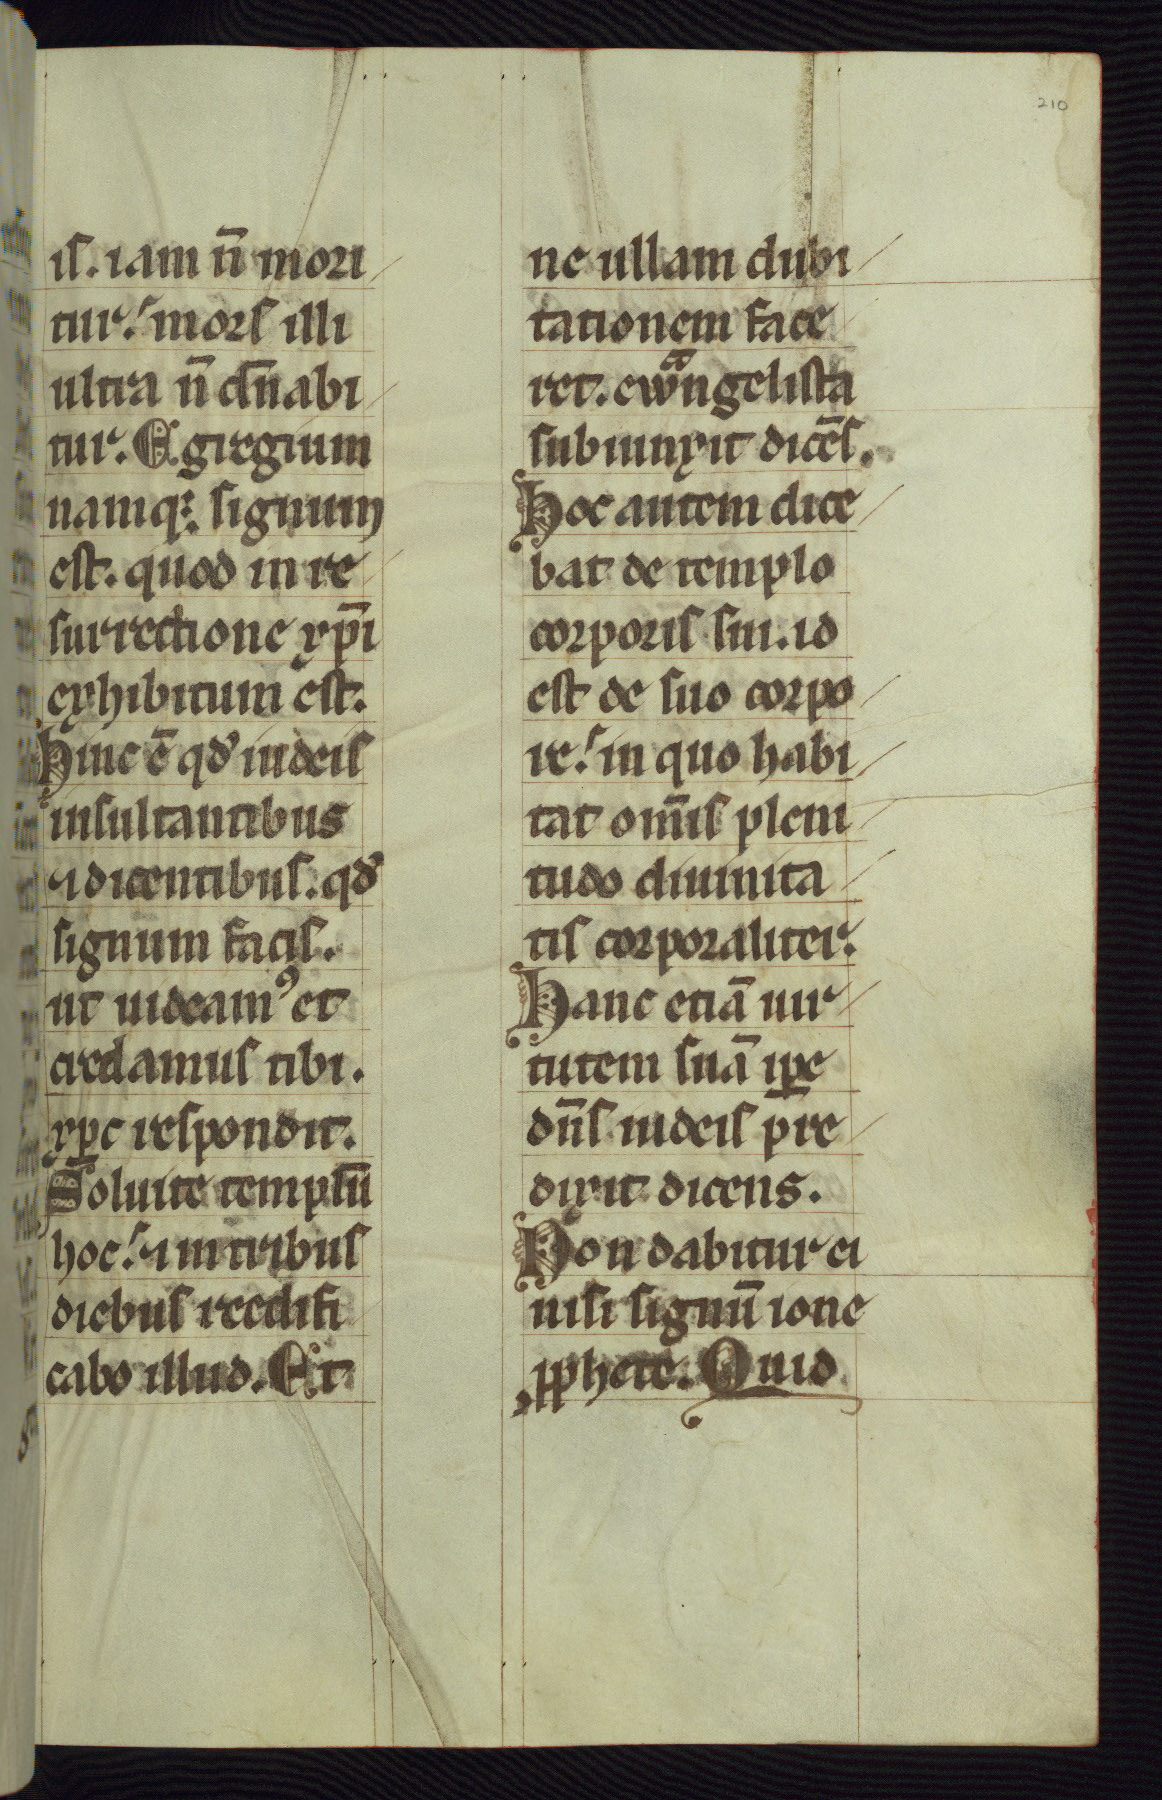 210
is. iam n̄ mori
tur. mors illi
ultra n̄ dn̄abi
tur. Egregium
namq; signum
est. quod in re
surrectione xp̄i
exhibitum est.
Hinc ē qd̾ iudeis
insultantibus
⁊ dicentibus. qd̾
signum facis.
ut uideamꝰ et
credamus tibi.
xp̄c respondit.
Soluite templū
hoc. ⁊ in tribus
diebus reedifi
cabo illud. Et
ne ullam dubi
tationem face
ret. ewāngelista
subiunxit dicēs.
Hoc autem dice
bat de templo
corporis sui. id
est de suo corpo
re. in quo habi
tat om̄is pleni
tudo diuinita
tis corporaliter.
Hanc etiā uir
tutem suā ip̄e
dn̄s iudeis p̄re
dixit dicens.
Non dabitur ei
nisi signū ione
ꝓphete. Quid